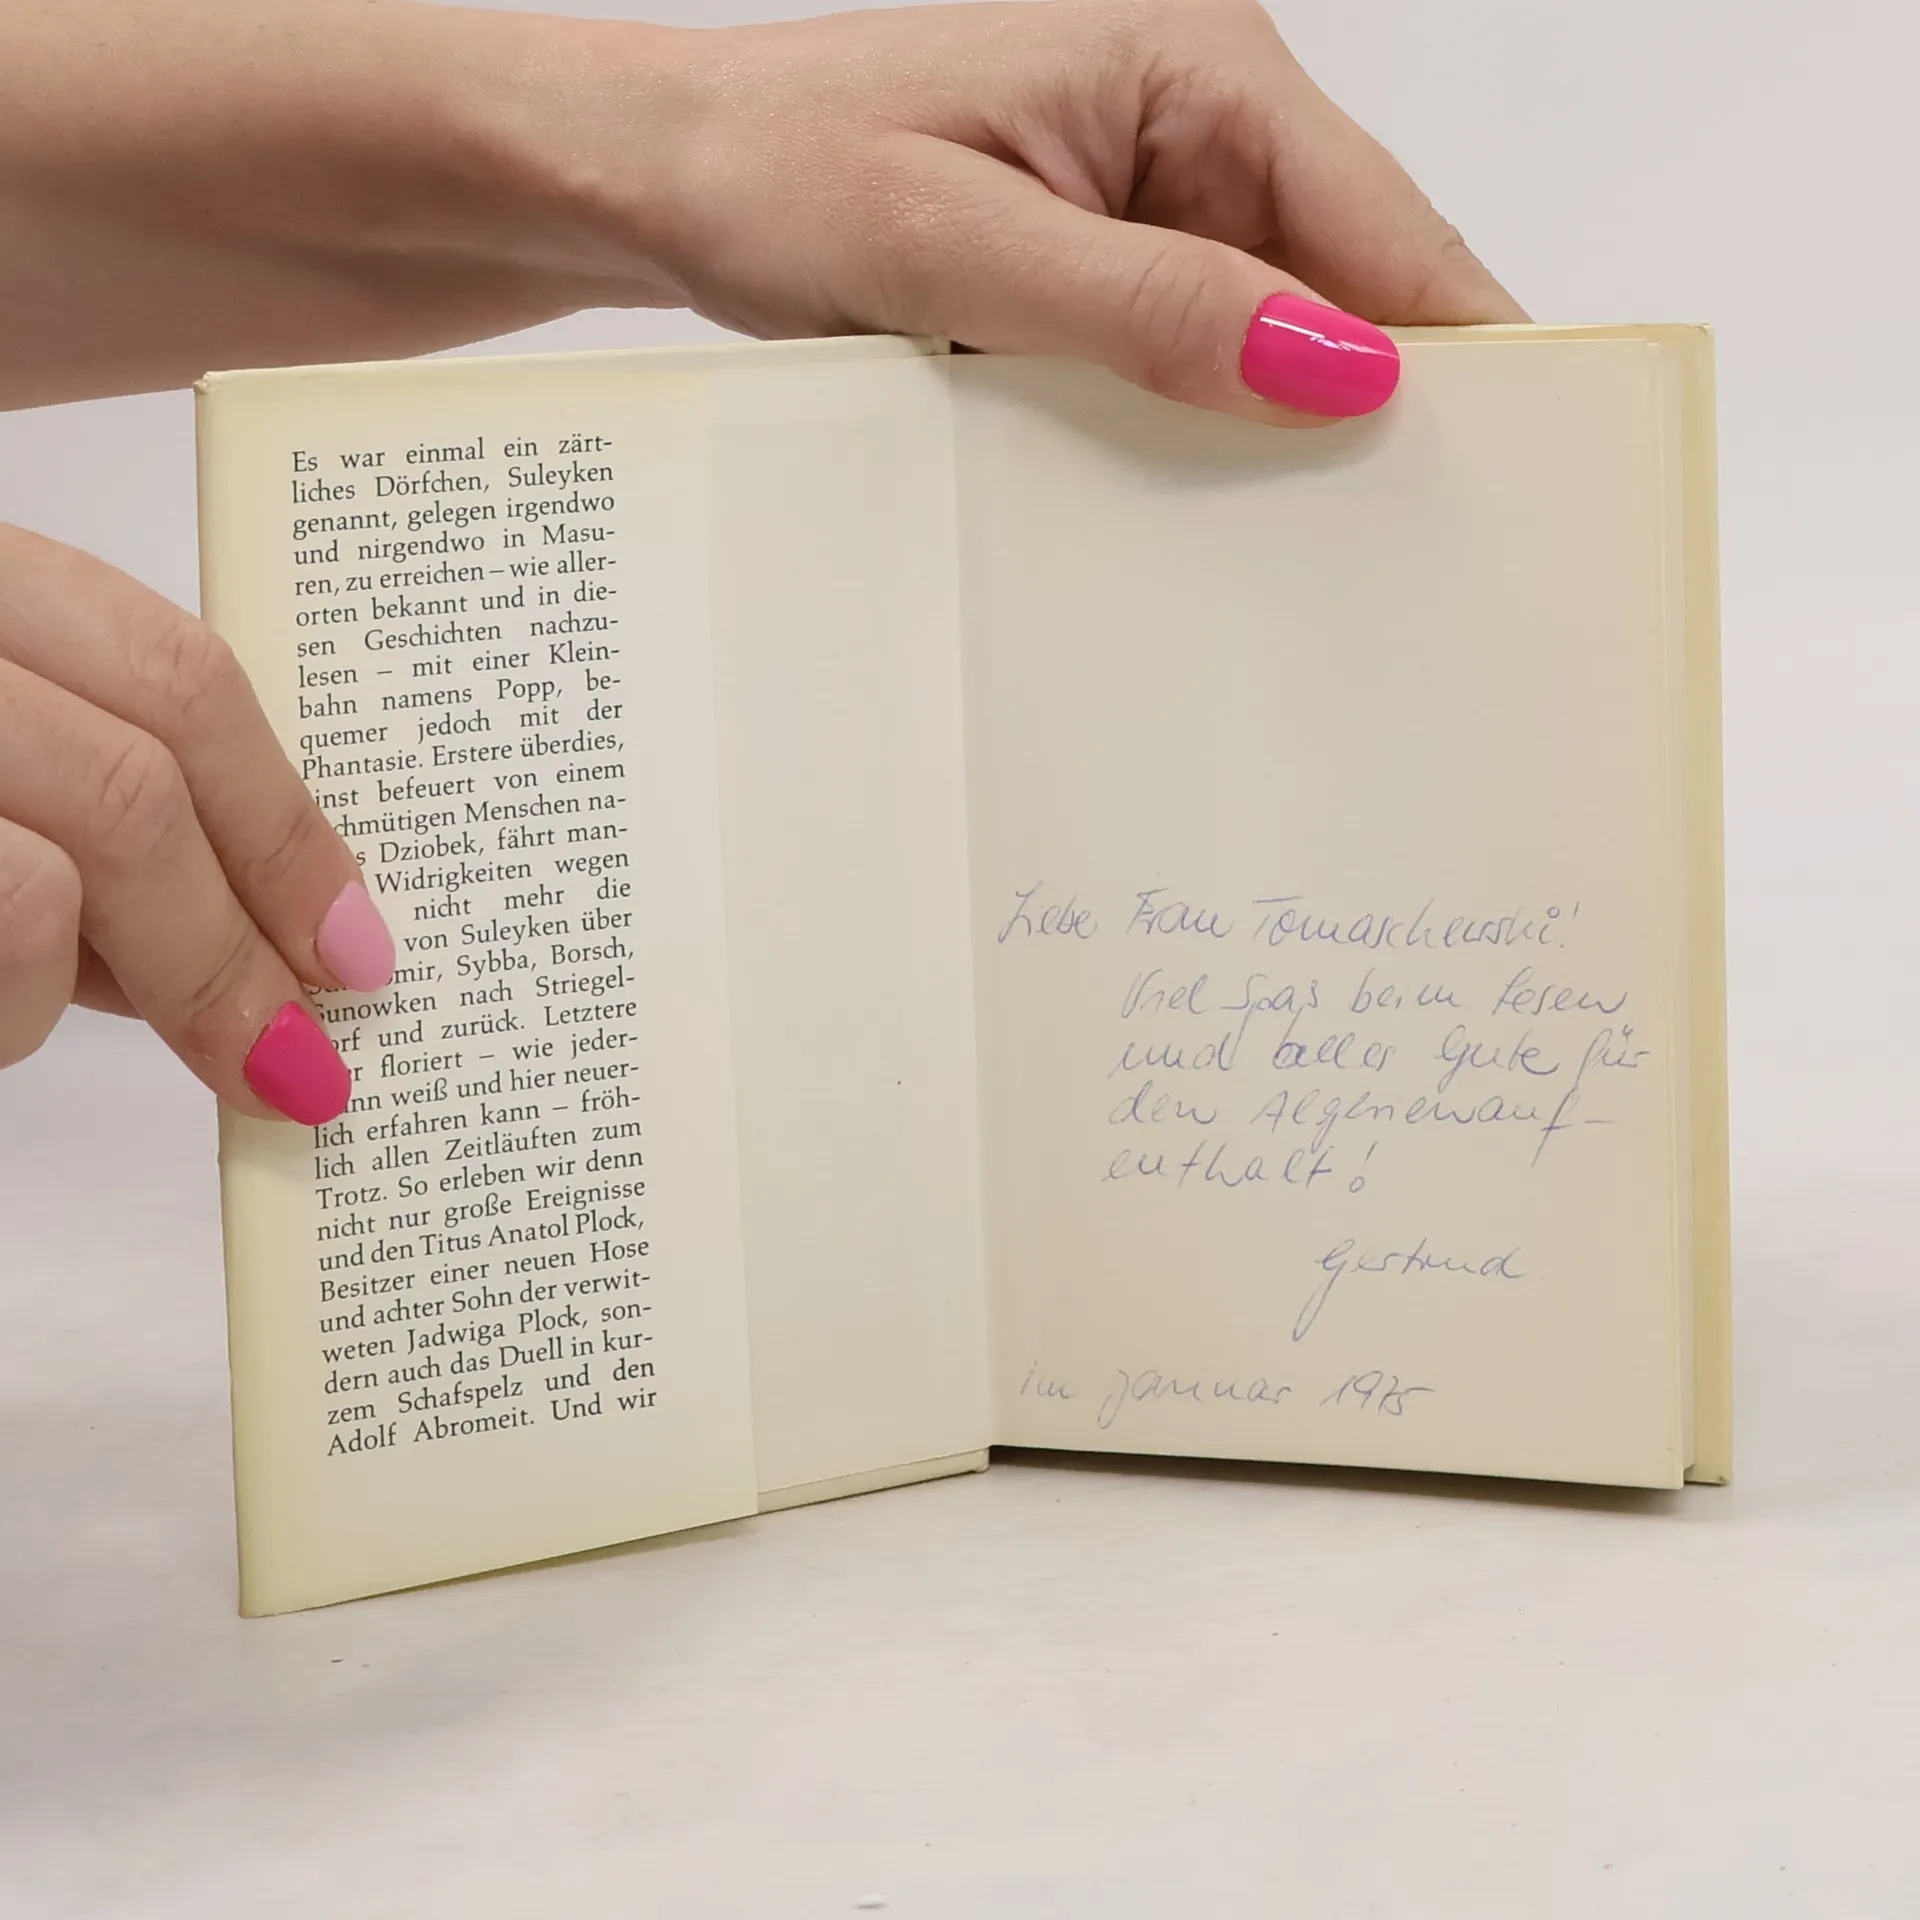 Es war einmal ein zärt-
liches Dörfchen, Suleyken
genannt, gelegen irgendwo
und nirgendwo in Masu-
ren, zu erreichen – wie aller-
orten bekannt und in die-
sen Geschichten nachzu-
lesen – mit einer Klein-
bahn namens Popp, be-
quemer jedoch mit der
Phantasie. Erstere überdies,
inst befeuert von einem
chmütigen Menschen na-
s Dziobek, fährt man-
Widrigkeiten wegen
nicht mehr die
von Suleyken über
mir, Sybba, Borsch,
Sunowken nach Striegel-
orf und zurück. Letztere
r floriert – wie jeder-
ann weiß und hier neuer-
lich erfahren kann – fröh-
lich allen Zeitläuften zum
Trotz. So erleben wir denn
nicht nur große Ereignisse
und den Titus Anatol Plock,
Besitzer einer neuen Hose
und achter Sohn der verwit-
weten Jadwiga Plock, son-
dern auch das Duell in kur-
zem Schafspelz und den
Adolf Abromeit. Und wir
Liebe Frau Tomaschewski!
Viel Spaß beim Lesen
und alles Gute für
den Algerienauf-
enthalt!
Gertrud
im Januar 1975